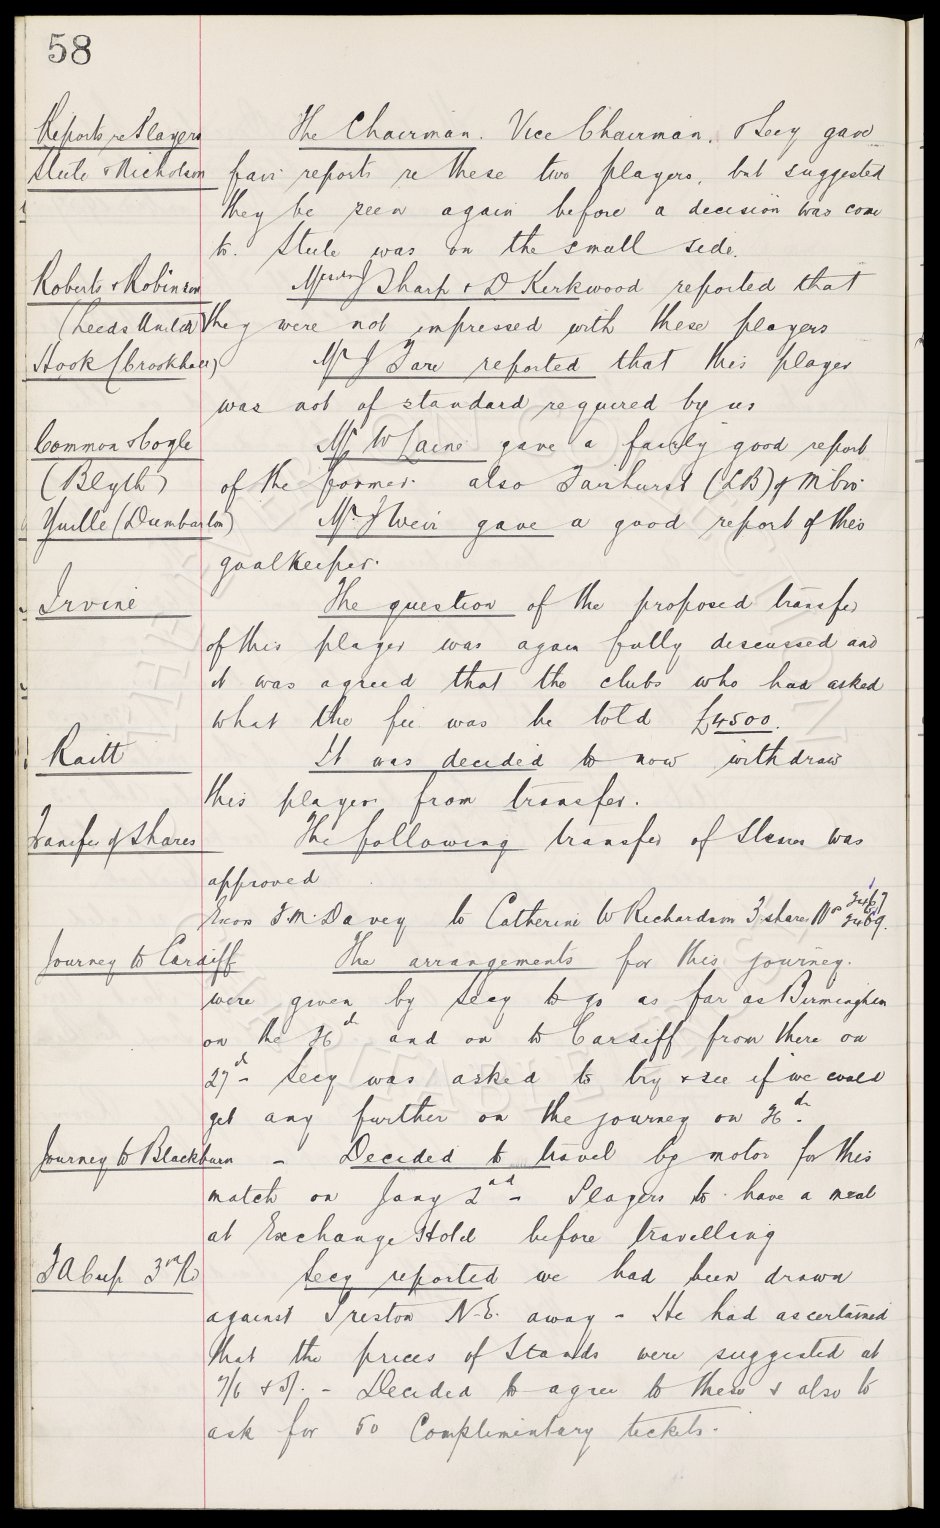 58
Reports re Players The Chairman. Vice Chairman. & Secy gave
Steele & Nicholson fair reports re these two players, but suggested
they be seen again before a decision was come
to. Steele was on the small side.
Roberts & Robinson Messrs J Sharp & D Kirkwood reported that
(Leeds United) they were not impressed with these players
Hook (Brookhall) Mr J Fare reported that this player
was not of standard required by us
Common & Coyle Mr W Laine gave a fairly good report
(Blyth) of the former. also Fairhurst (LB) of
Yuille (Dumbarton) Mr J Weir gave a good report of this
goalkeeper.
Irvine The question of the proposed transfer
of this player was again fully discussed and
it was agreed that the clubs who had asked
what the fee was be told £4500.
Raitt It was decided to now withdraw
this player from transfer.
Transfer of Shares The following transfer of Shares was
approved
Exors T.M. Davey to Catherine W Richardson 3 shares Nos 3467
3469.
Journey to Cardiff The arrangements for this journey.
were given by Secy to go as far as Birmingham
on the 26th and on to Cardiff from there on
27th - Secy was asked to try & see if we could
get any further on the journey on 26th.
Journey to Blackburn - Decided to travel by motor for this
match on Jany 2nd - Players to have a meal
at Exchange Hotel before travelling
F A Cup 3rd Rd Secy reported we had been drawn
against Preston N.E. away - He had ascertained
that the prices of Stands were suggested at
7/6 & 5/. - Decided to agree to these & also to
ask for 50 Complimentary tickets.